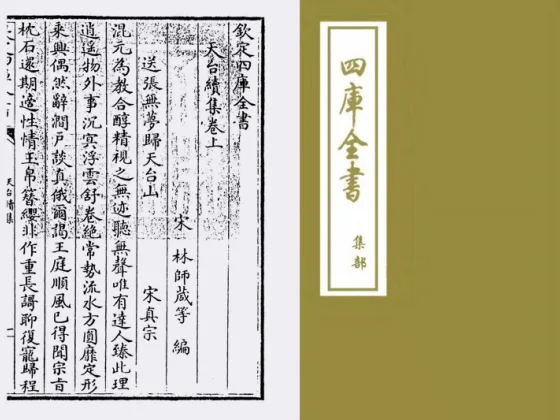 欽定四庫全書
天台續集卷上
宋 林師蔵等 編
送張無夢歸天台山 宋真宗
混元為教合醇精視之無迹聽無聲唯有達人臻此理
逍遙物外事沉冥浮雲舒卷絕常勢流水方圓靡定形
乘興偶然辭澗戶談真俄爾謁王庭順風已得聞宗旨
枕石還期適性情玉帛簪纓非作重長謌聊復寵歸程
天台續集
四庫全書
集部